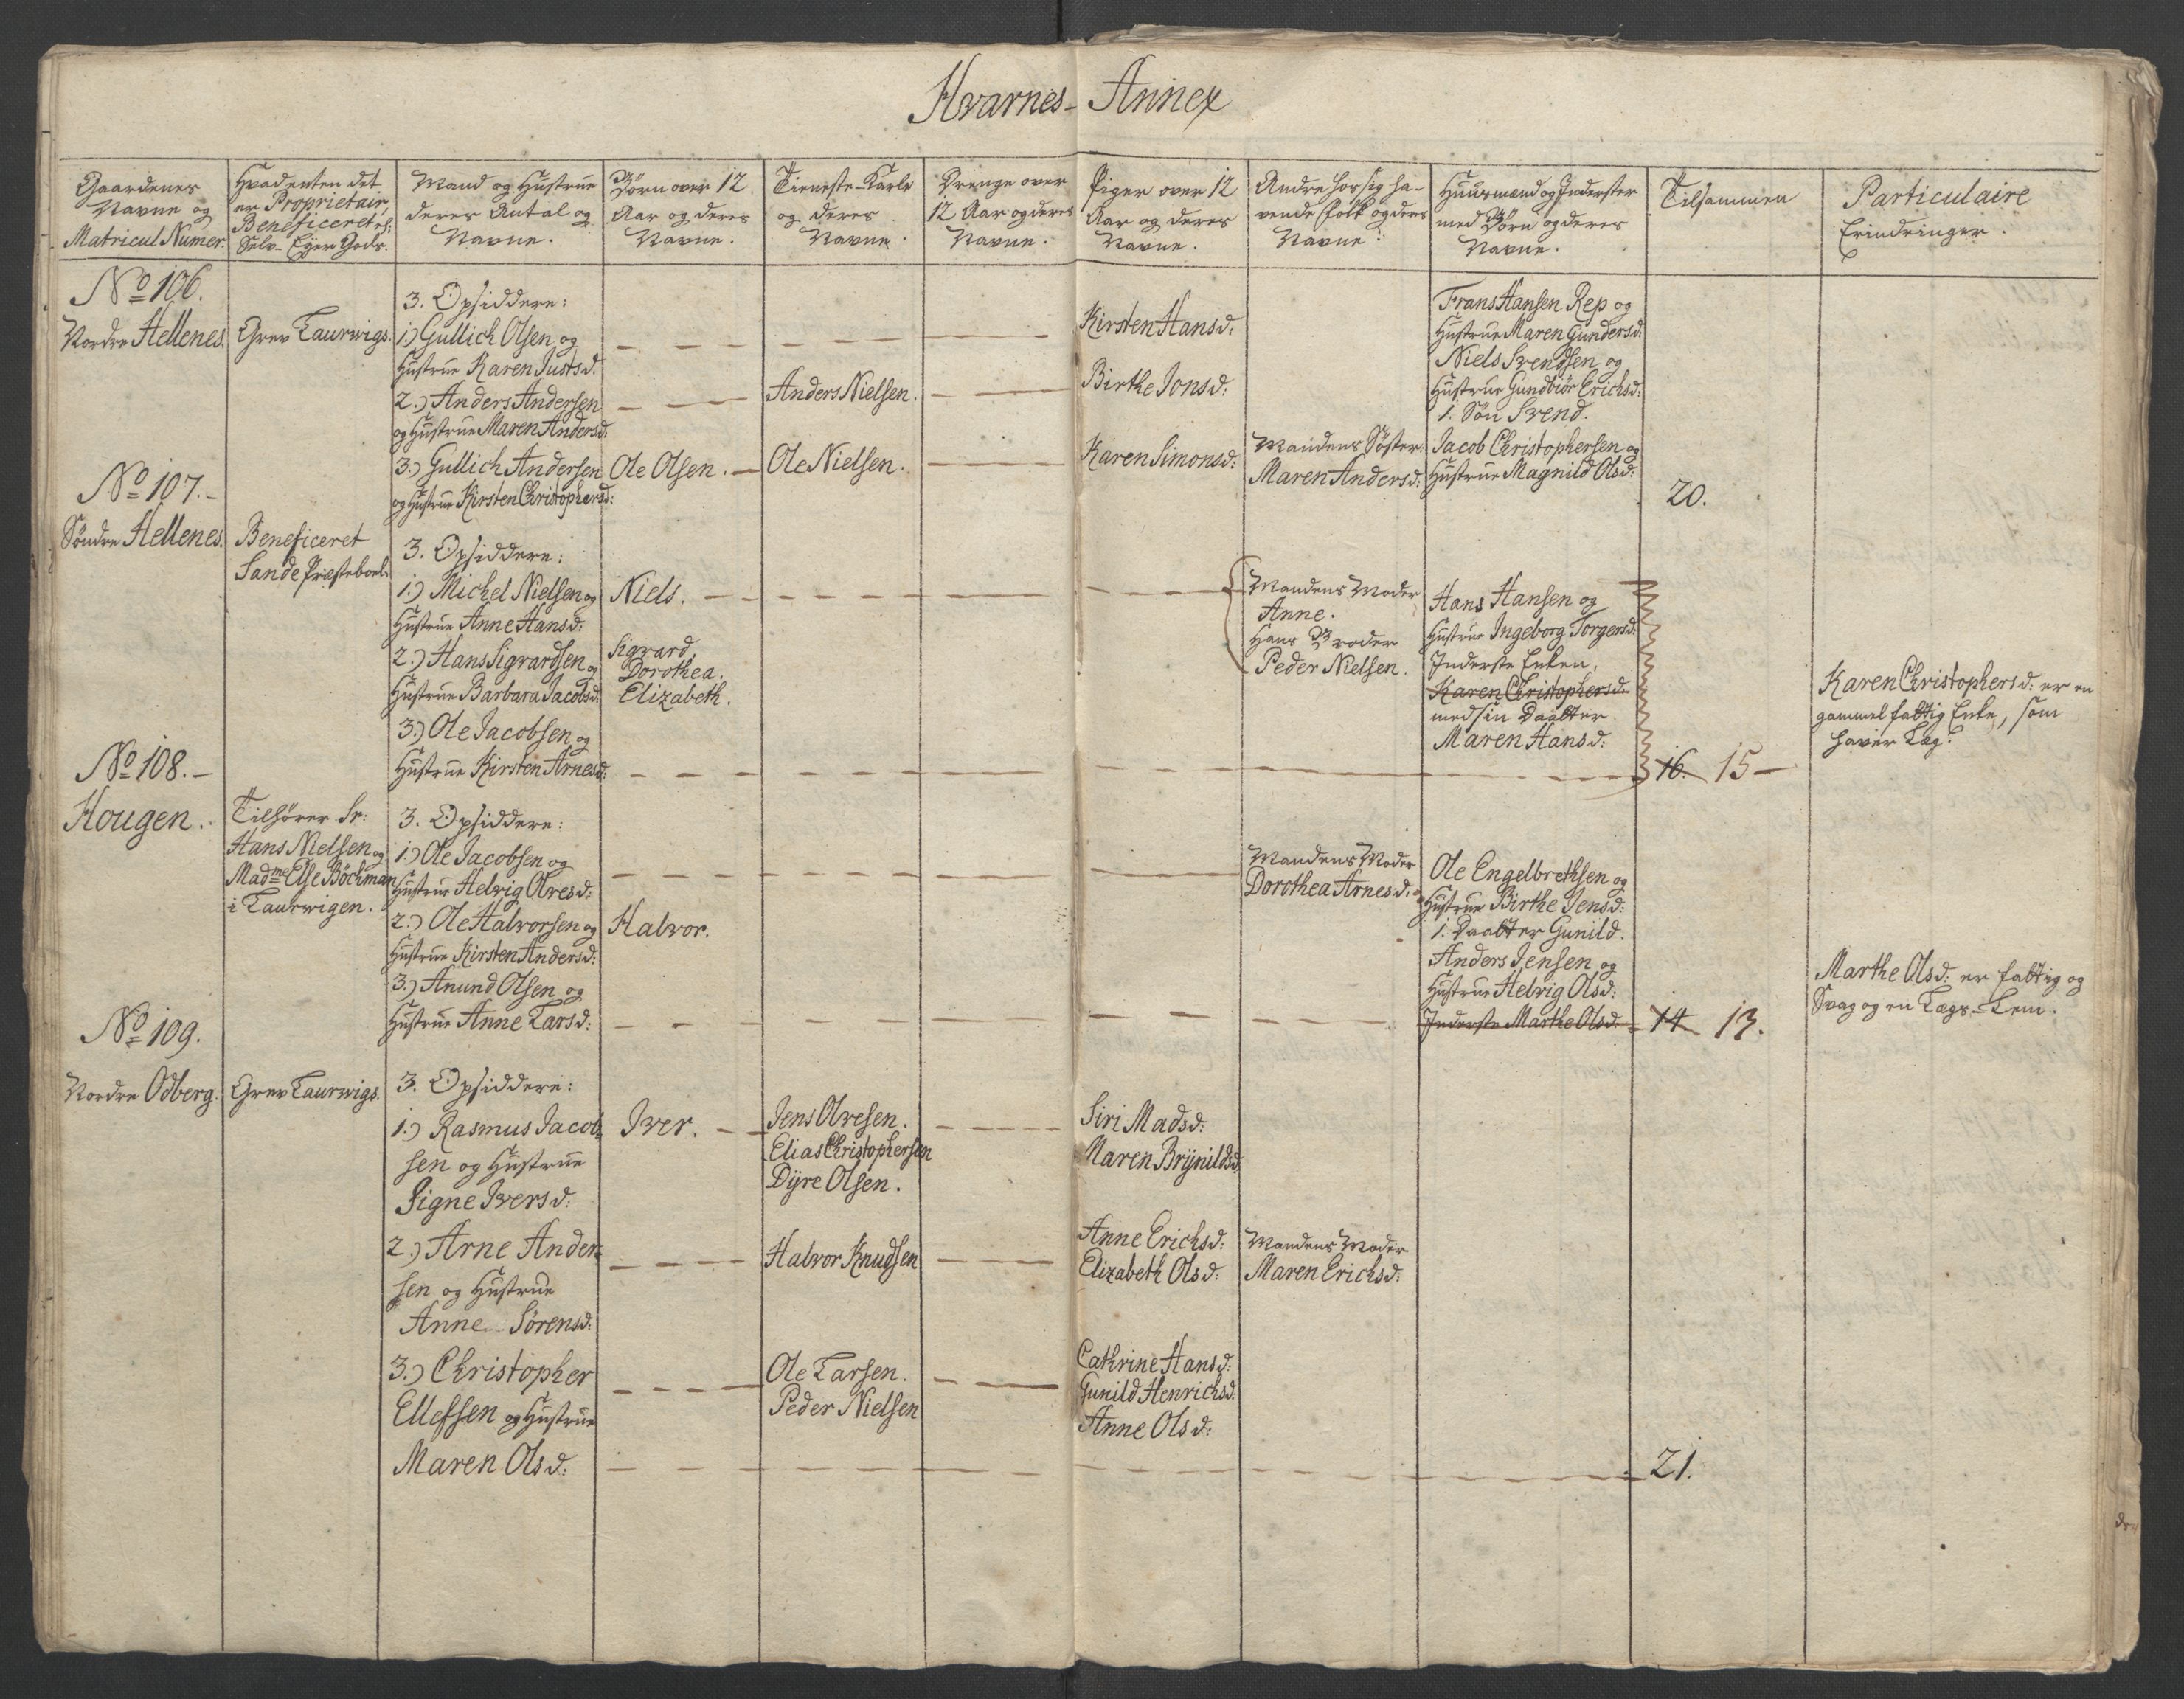 Hvarnes- Annex
Gaardenes
Navne og
Matricul Numer.
Hvad enten det
er Proprietair,
Beneficeret el:
Selv- Ejer Gods.
Mand og Hustrue
deres Antal og
Navne.
Børn over 12
Aar og deres
Navne.
Tieneste-Karle
og deres
Navne.
Drenge over
12 Aar og deres
Navne.
Piger over 12
Aar og deres
Navne.
Andre hos sig ha-
vende Folk og deres
Navne:
Huusmænd og Inderster
med Børn og deres
Navne.
Tilsammen
Particulaire
Erindringer.
No 106.
Nordre Hellenes.
Grev Laurwigs.
3. Opsiddere:
1.) Gullich Olsen og
Hustrue Karen Justsd:
2.) Anders Andersen
og Hustrue Maren Andersd:
3.) Gullich Andersen
og Hustrue Kirsten Christophersd:
Ole Olsen.
Anders Nielsen.
Ole Nielsen.
Kirsten Hansd:
Birthe Jonsd:
Karen Simonsd:
Mandens Søster:
Maren Andersd:
Frans Hansen Rep og
Hustrue Maren Gundersd:
Niels Svendsen og
Hustrue Gundbiør Erichsd:
1. Søn Svend.
Jacob Christophersen og
Hustrue Magnild Olsd:
20.
No 107.-
Søndre Hellenes.
Beneficeret
Sande Præsteboel.
3. Opsiddere:
1.) Michel Nielsen og
Hustrue Anne Hansd:
2.) Hans Sigvardsen og
Hustrue Barbara Jacobsd:
3.) Ole Jacobsen og
Hustrue Kirsten Arnesd:
Niels.
Sigvard.
Dorothea.
Elizabeth.
Mandens Moder
Anne.
Hans Broder
Peder Nielsen.
Hans Hansen og
Hustrue Ingeborg Torgersd:
Inderste Enken,
Karen Christophersd:
med sin Daatter
Maren Hansd:
16. 15-
Karen Christophersd: er en
gammel fattig Enke, som
haver Læg.
No 108.-
Hougen.
Tilhører Sr:
Hans Nielsen og
Madme Else Böckman
i Laurwigen.
3. Opsiddere:
1.) Ole Jacobsen og
Hustrue Helvig Olvesd:
2.) Ole Halvorsen og
Hustrue Kirsten Andersd:
3.) Anund Olsen og
Hustrue Anne Larsd:
Halvor.
Mandens Moder
Dorothea Arnesd:
Ole Engelbrethsen og
Hustrue Birthe Jensd:
1. Daatter Gunild.
Anders Jensen og
Hustrue Helvig Olsd:
Inderste Marthe Olsd:
14 13.
Marthe Olsd: er fattig og
Svag og en Lægs-Lem.
No 109.
Nordre Odberg.
Grev Laurwigs.
3. Opsiddere:
1.) Rasmus Jacob=
sen og Hustrue
Signe Iversd:
2.) Arne Ander=
sen og Hustrue
Anne Sørensd:
3.) Christopher
Ellefsen og Hustrue
Maren Olsd:
Iver.
Jens Olvesen.
Elias Christophersen
Dÿre Olsen.
Halvor Knudsen
Ole Larsen.
Peder Nielsen
Siri Madsd:
Maren Brÿnildsd:
Anne Erichsd:
Elizabeth Olsd:
Cathrine Hansd:
Gunild Henrichsd:
Anne Olsd:
Mandens Moder
Maren Erichsd:
21.